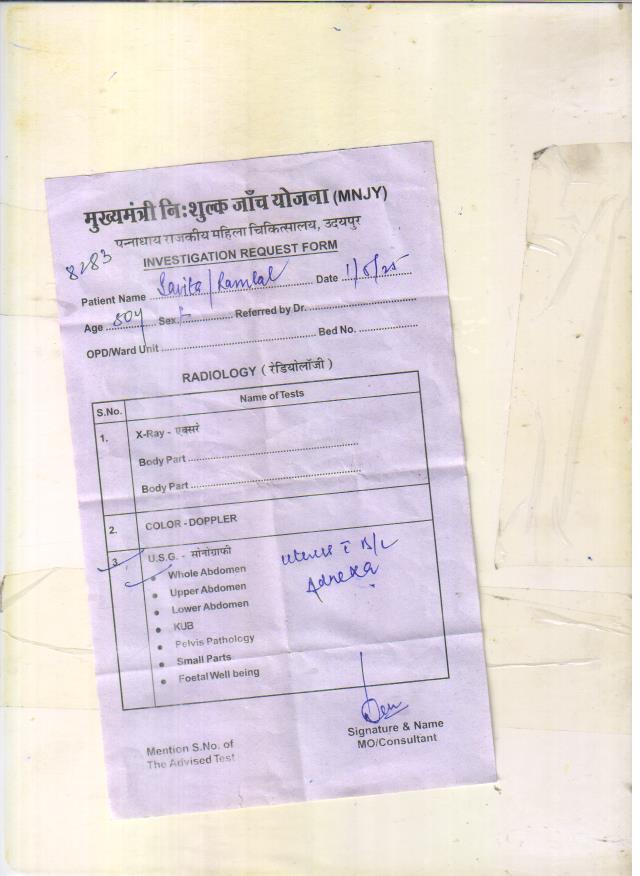 मुख्यमंत्री निःशुल्क जाँच योजना (MNJY)
पन्नाधाय राजकीय महिला चिकित्सालय, उदयपुर
8283
INVESTIGATION REQUEST FORM
Patient Name Savita/Ramlal Date
Age 80y Sex F Referred by Dr.
OPD/Ward Unit Bed No.
RADIOLOGY (रेडियोलॉजी)
S.No. Name of Tests
1. X-Ray - एक्सरे
Body Part
Body Part
2. COLOR - DOPPLER
3. U.S.G. - सोनोग्राफी
• Whole Abdomen uterus ī B/L
• Upper Abdomen Adnexa
• Lower Abdomen
• KUB
• Pelvis Pathology
• Small Parts
• Foetal Well being
Mention S.No. of
The Advised Test
Signature & Name
MO/Consultant